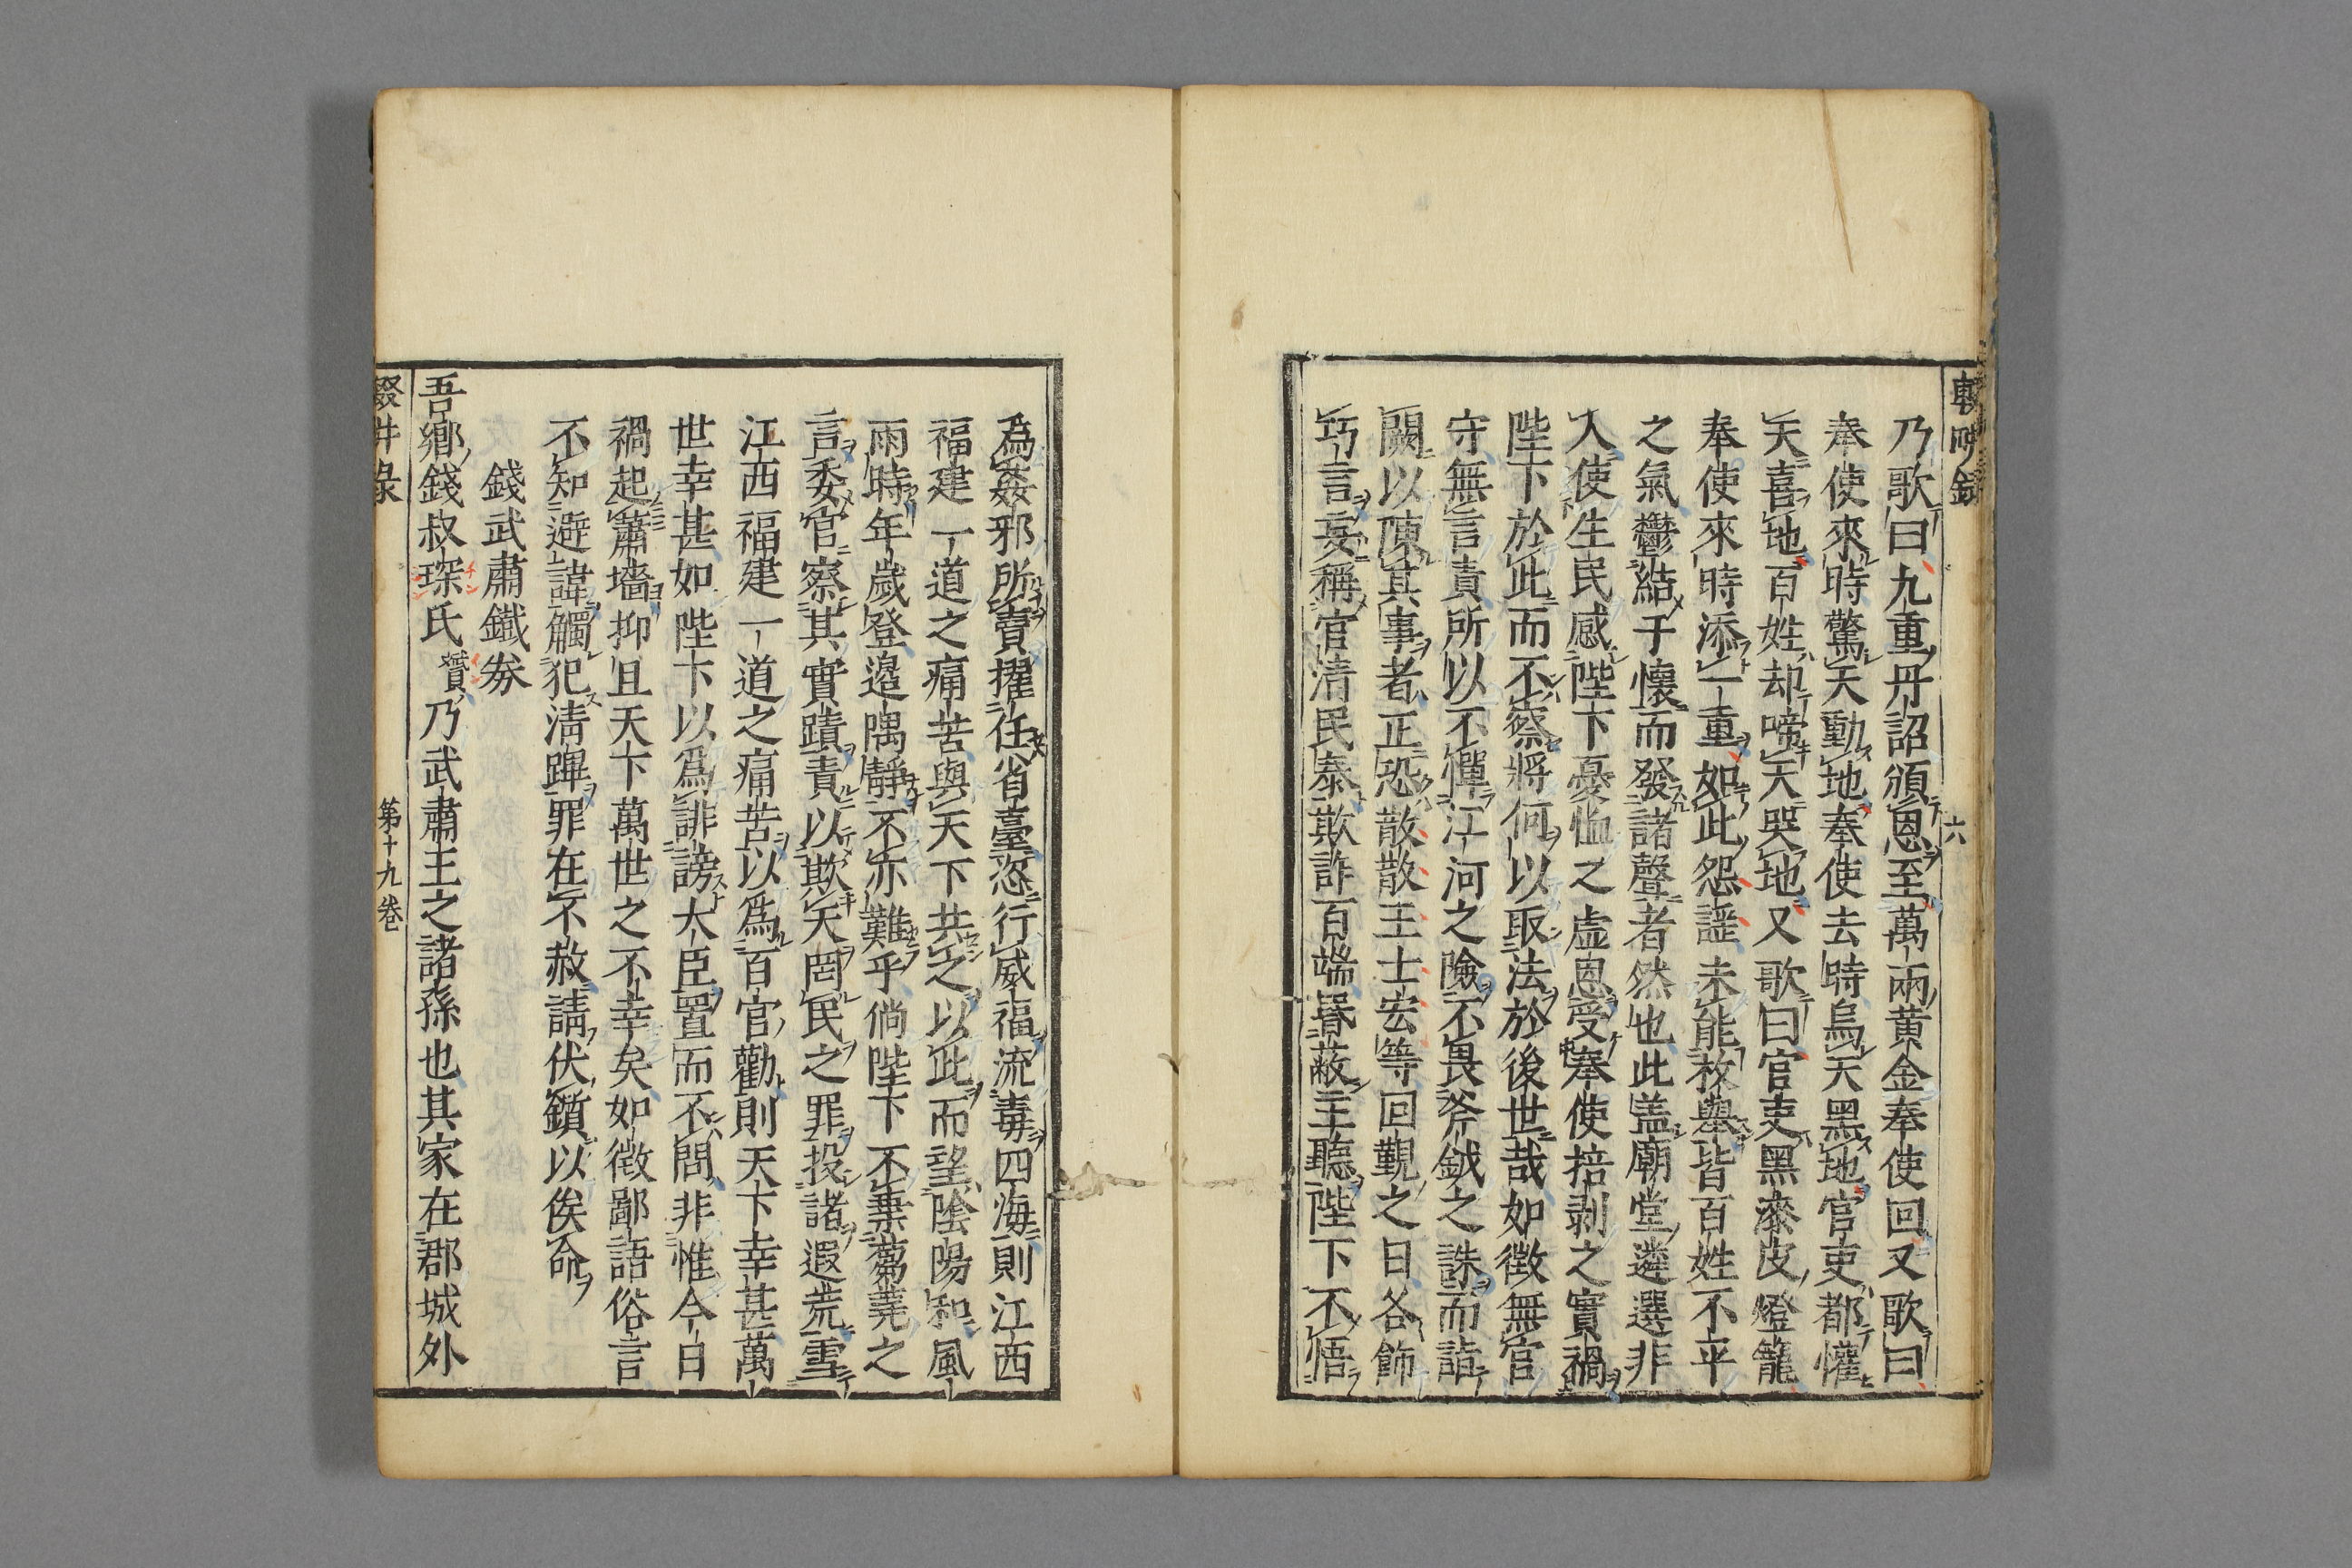 六
乃歌曰九重丹詔頒恩至萬兩黃金奉使回又歌曰
奉使來時驚天動地奉使去時烏天黑地官吏都懽
天喜地百姓却啼天哭地又歌曰官吏黑漆皮燈籠
奉使來時添一重如此怨謡未能枚舉皆百姓不平
之氣鬱結于懷而發諸聲者然也此盖廟堂遴選非
人使生民感陛下憂恤之虛恩受奉使掊剥之實禍
陛下於此而不察將何以取法於後世哉如徴無官
守無言責所以不憚江河之險不畏斧鉞之誅而詣
闕以陳其事者正恐散散王士宏等回覲之日各飾
巧言妄稱官清民泰欺詐百端昬蔽主聽陛下不悟
為姦邪所賣擢任省臺恣行威福流毒四海則江西
福建一道之痛苦與天下共之以此而望陰陽和風
雨時年歲登邉隅靜不亦難乎倘陛下不棄蒭蕘之
言委官察其實蹟責以欺天罔民之罪投諸遐荒雪
江西福建一道之痛苦以爲百官勸則天下幸甚萬
世幸甚如陛下以爲誹謗大臣置而不問非惟今日
禍起蕭墻抑且天下萬世之不幸矣如徴鄙語俗言
不知避諱觸犯清蹕罪在不赦請伏鑕以俟命
錢武肅鐵券
吾鄉錢叔琛氏贇乃武肅王之諸孫也其家在郡城外
第十九卷